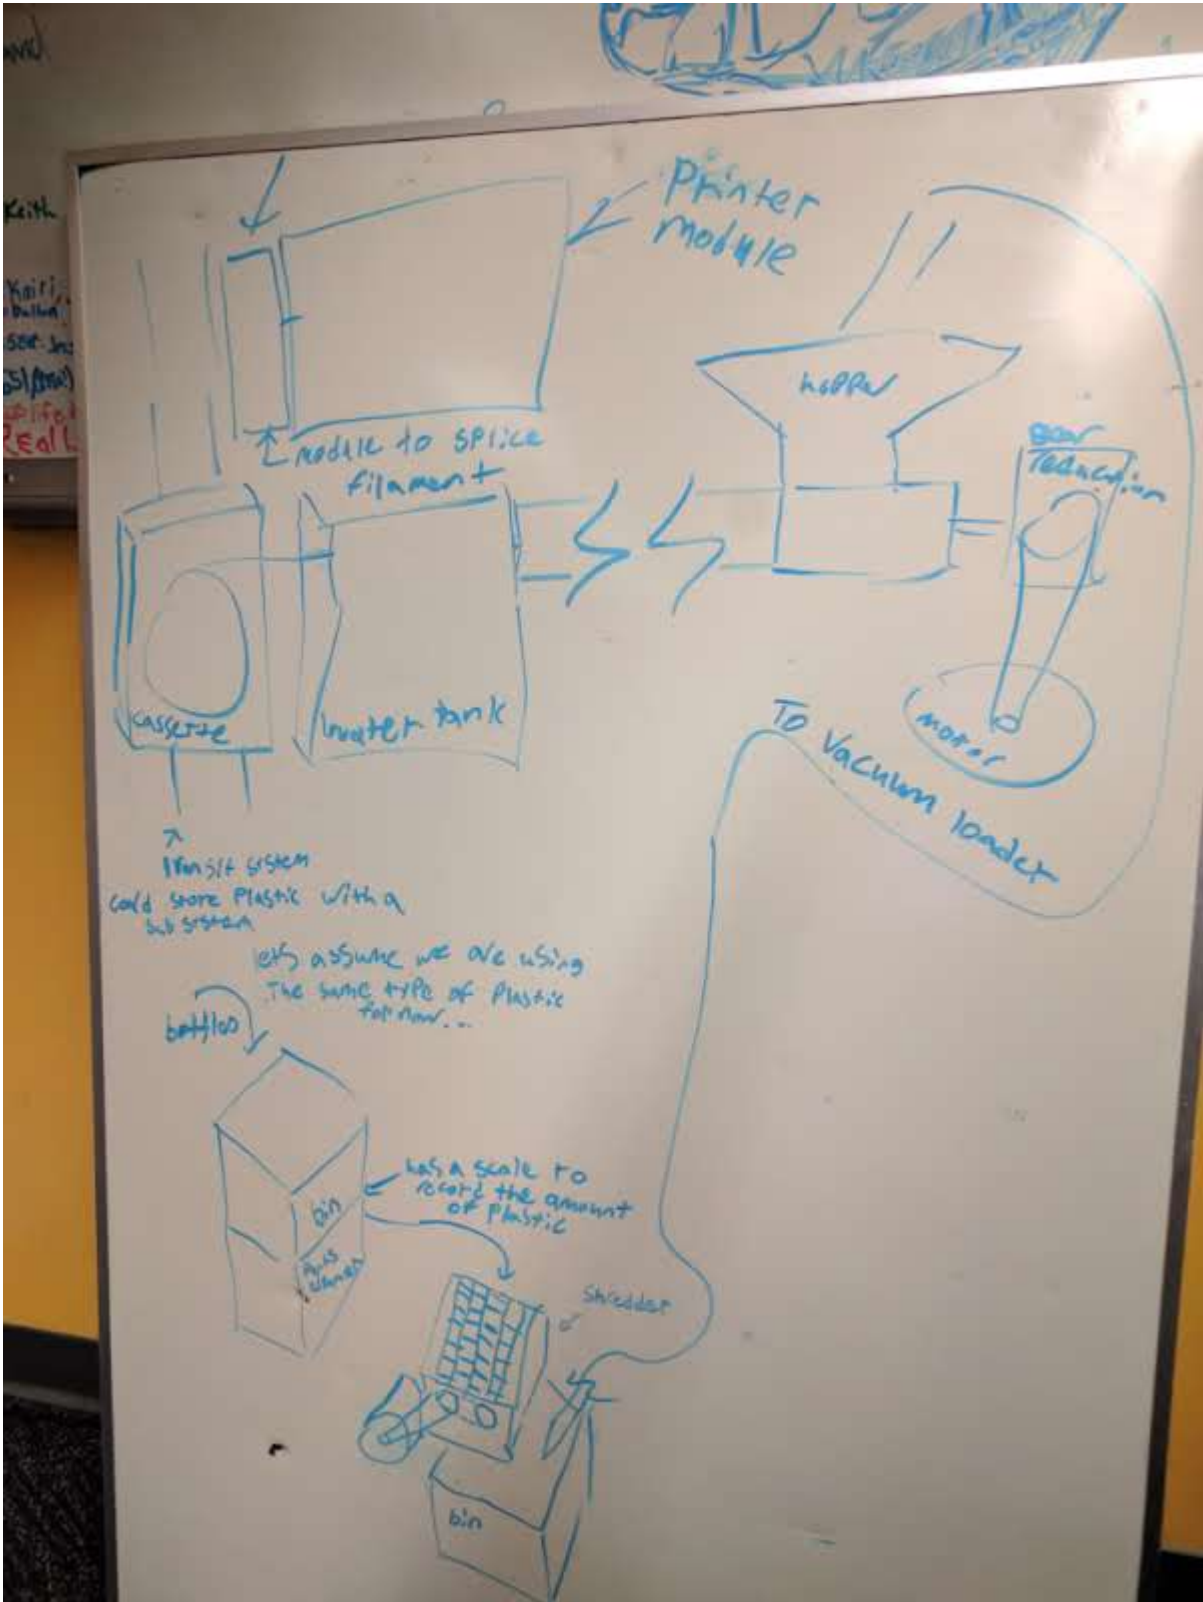 Keith
Printer
Module
hopper
module to splice
filament
gear
reduction
cassette
water tank
motor
To Vacuum loader
Transit system
could store Plastic with a
sub system
lets assume we are using
The same type of Plastic
for now...
bottles
has a scale to
record the amount
of plastic
bin
shredder
bin